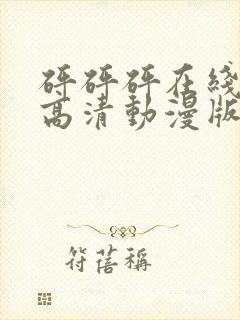 砰砰砰在綫
高清動漫版
符蓓稱